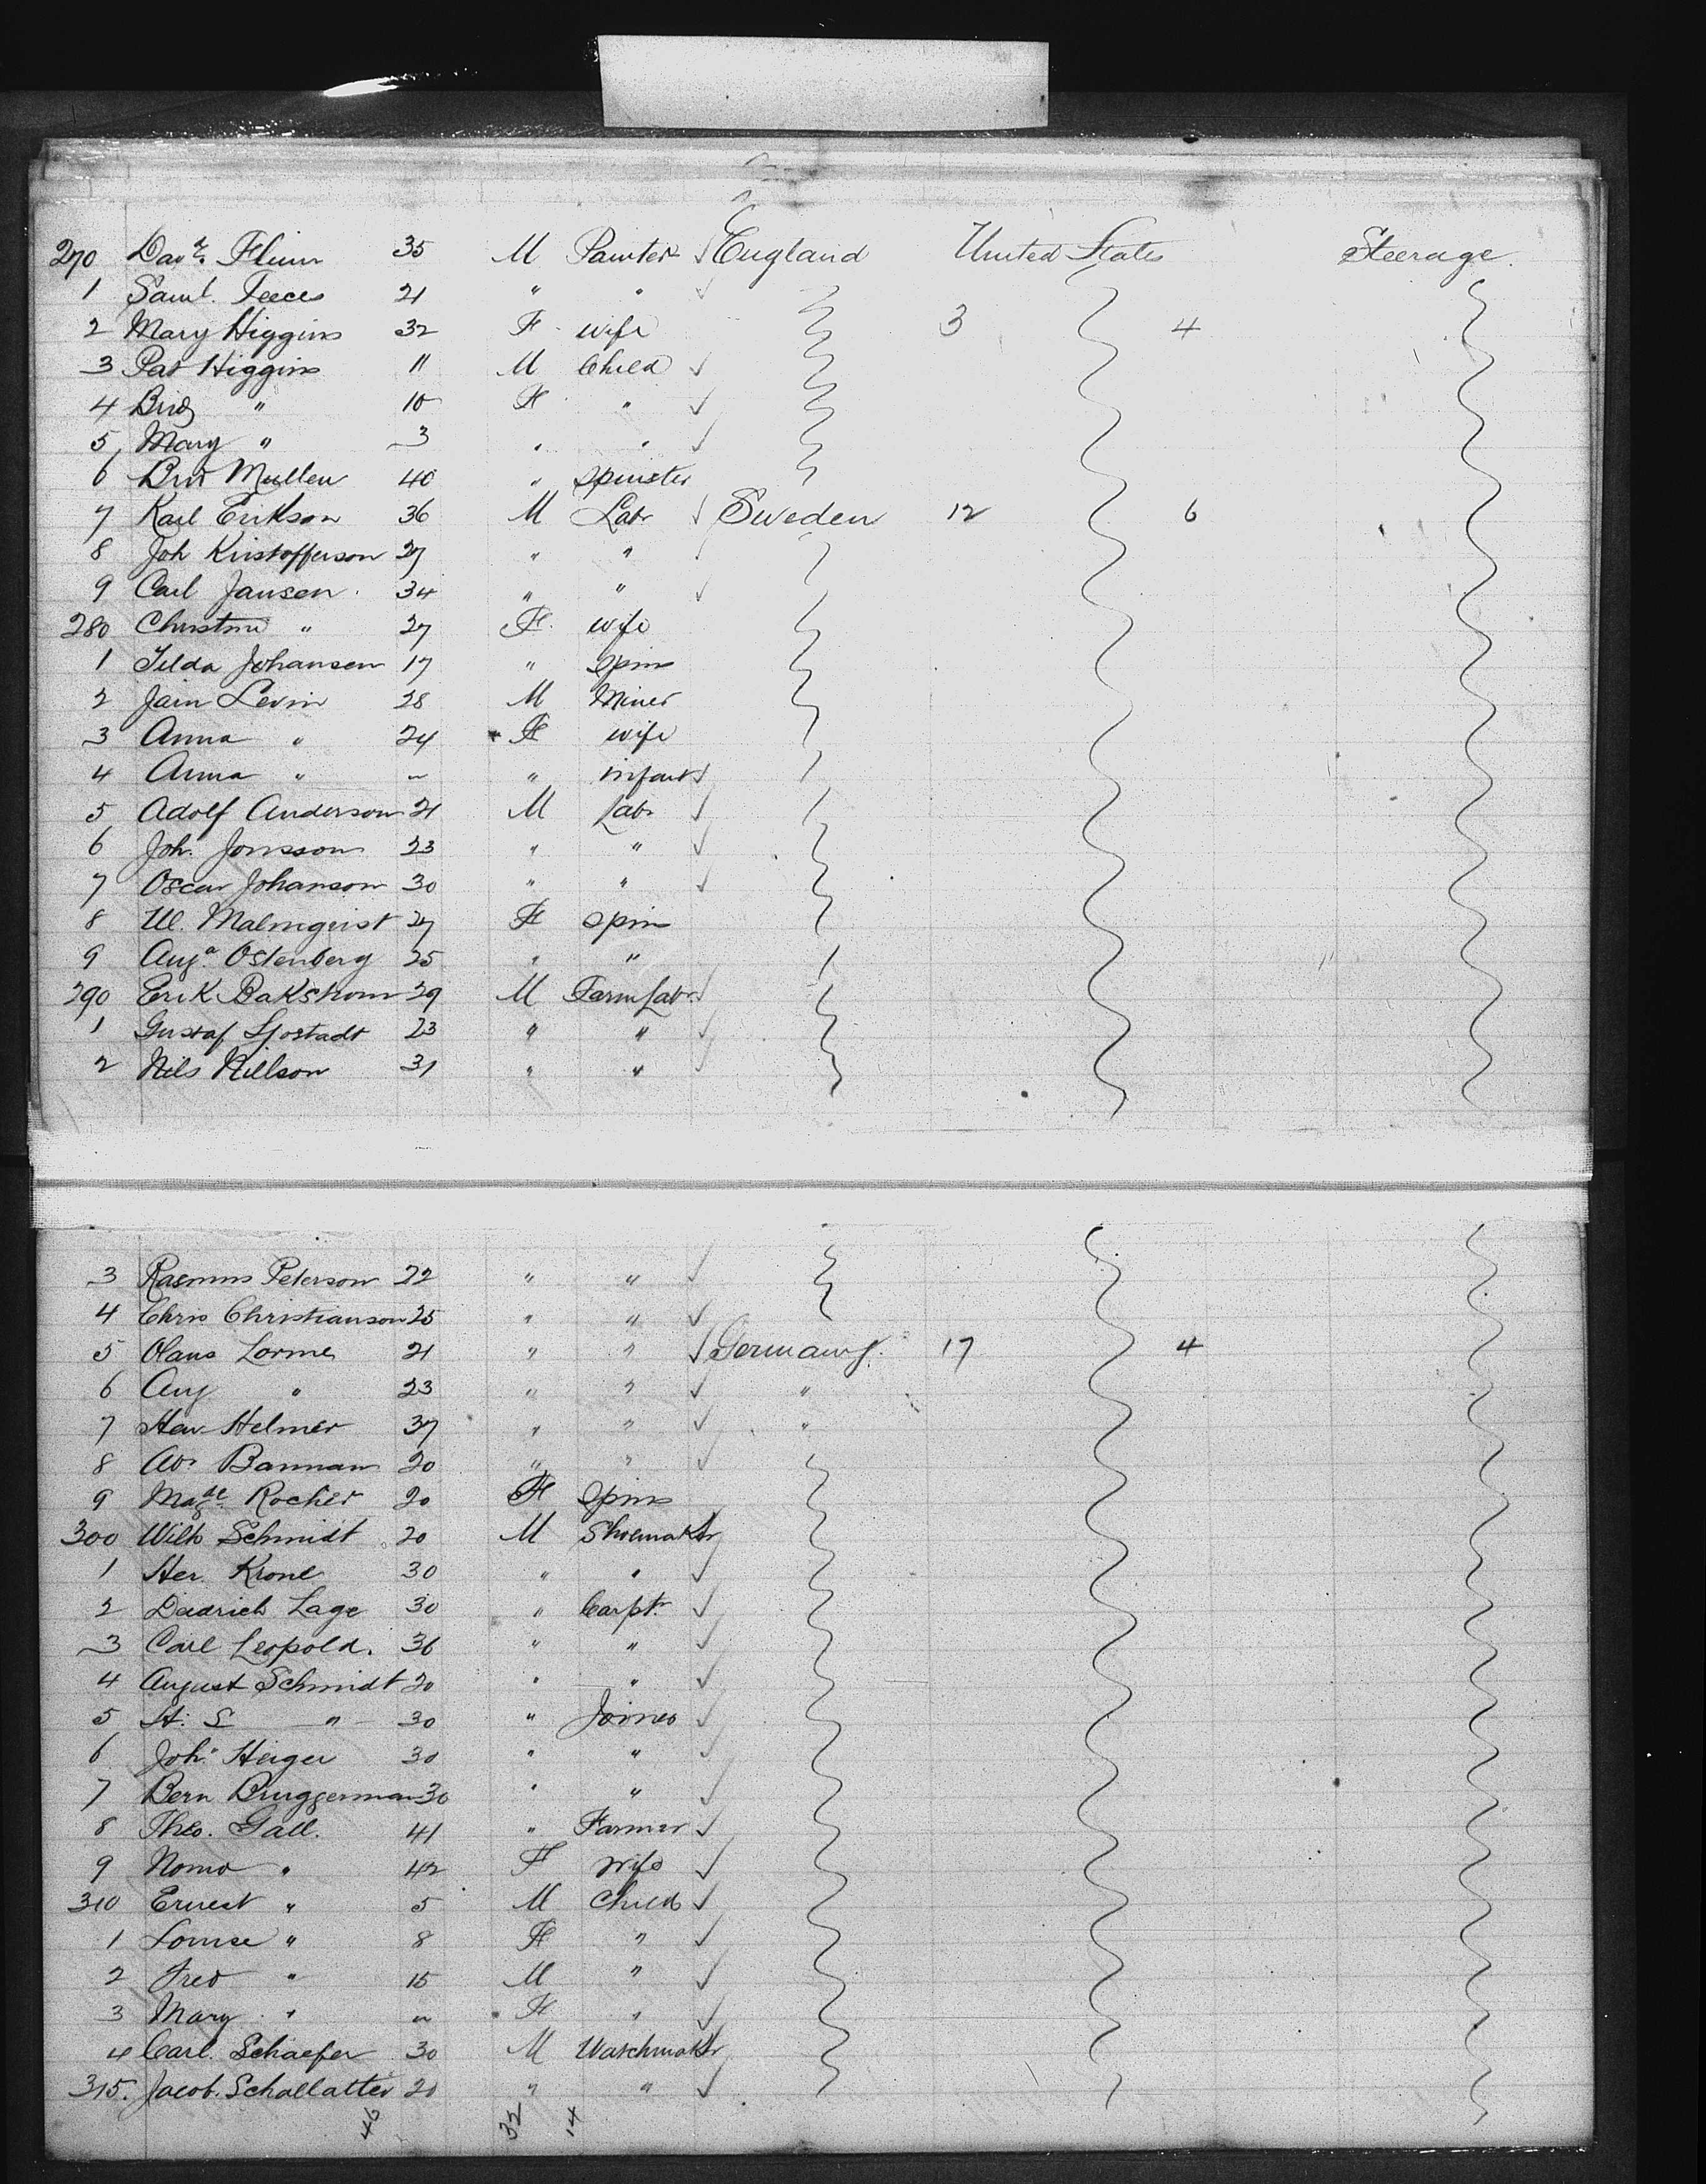 270 Davd. Flinn 35 M Painter ✓ England United States Steerage.
1 Saml. Teeces 21 " " ✓
2 Mary Higgins 32 F wife 3 4
3 Pat Higgins 11 M Child ✓
4 Brid " 10 F " ✓
5 Mary " 3 " " ✓
6 Brid Mullen 40 " Spinster
7 Karl Erikson 36 M Labr ✓ Sweden 12 6
8 Joh Kristofferson 27 " " ✓
9 Carl Jansen 34 " " ✓
280 Christine " 27 F. wife
1 Tilda Johansen 17 " Spins
2 Jain Levin 28 M Miner
3 Anna " 24 F wife
4 Anna " ~ " infant ✓
5 Adolf Anderson 21 M Labr ✓
6 Joh. Jonsson 23 " " ✓
7 Oscar Johanson 30 " " ✓
8 Ul. Malmqvist 27 F Spins
9 Auga. Ostenberg 25 " "
290 Erik Bakstrom 29 M Farm Labr ✓
1 Gustaf Sjostadt 23 " " ✓
2 Nils Nillson 31 " " ✓
3 Rasmus Peterson 22 " " ✓
4 Chris Christianson 25 " " ✓
5 Olans Lorme 21 " " ✓ Germany. 17 4
6 Aug " 23 " " ✓ "
7 Hen Helmer 37 " " ✓ "
8 Ab. Banman 20 " " ✓
9 Magde. Rocher 20 F Spins
300 Wilh Schmidt 20 M Shoemaker ✓
1 Her. Krone 30 " " ✓
2 Deidrich Lage 30 " Carptr ✓
3 Carl Leopold. 36 " " ✓
4 August Schmidt 20 " " ✓
5 H. S " 30 " Joiner ✓
6 John Heiger 30 " " ✓
7 Bern Bruggerman 30 " " ✓
8 Theo. Gall. 41 " Farmer ✓
9 Nomo " 42 F Wife ✓
310 Ernest " 5 M Child ✓
1 Louise " 8 F " ✓
2 Fred " 15 M " ✓
3 Mary " ~ F " ✓
4 Carl. Schaefer 30 M Watchmakr ✓
315. Jacob. Schallatter 20 " " ✓
46 32 14